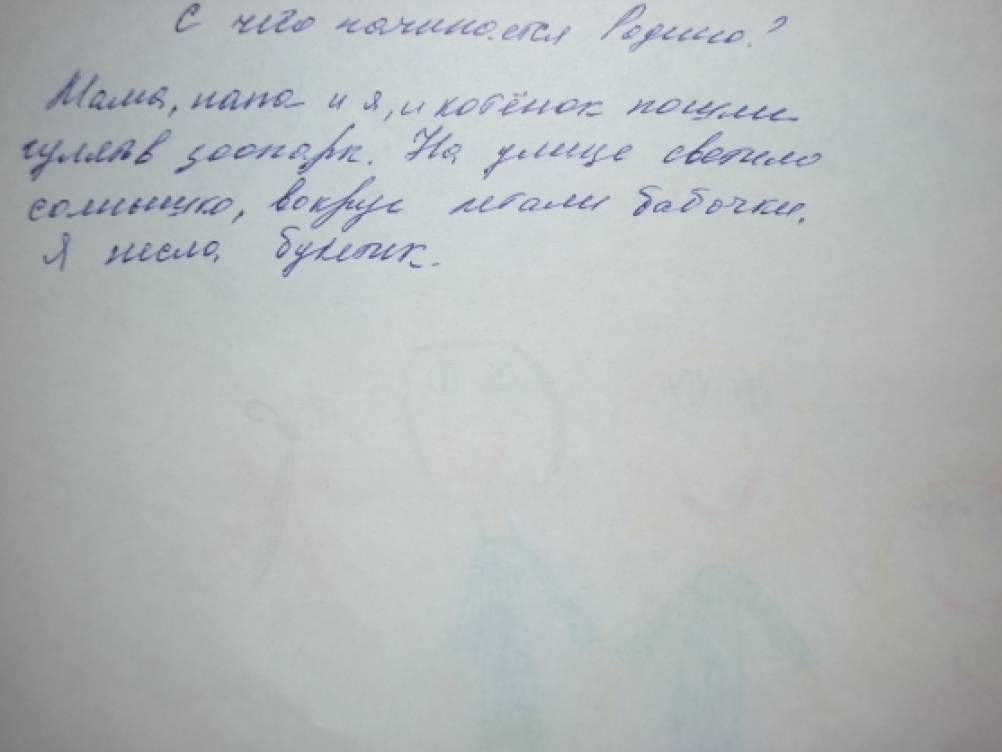 С чего начинается Родина?
Мама, папа и я, и котёнок пошли
гулять в зоопарк. На улице светило
солнышко, вокруг летали бабочки.
Я несла букетик.